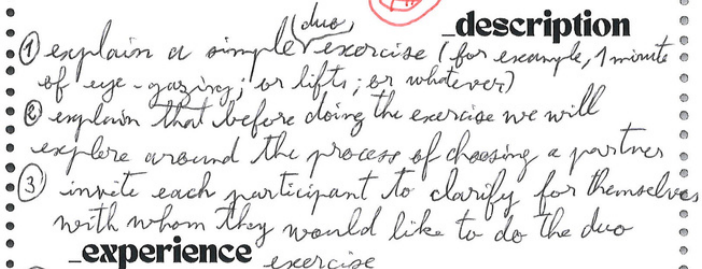 _description
① explain a simple (duo) exercise (for example, 1 minute
of eye-gazing; or lifts; or whatever)
② explain that before doing the exercise we will
explore around the process of choosing a partner
③ invite each participant to clarify for themselves
with whom they would like to do the duo
_experience exercise